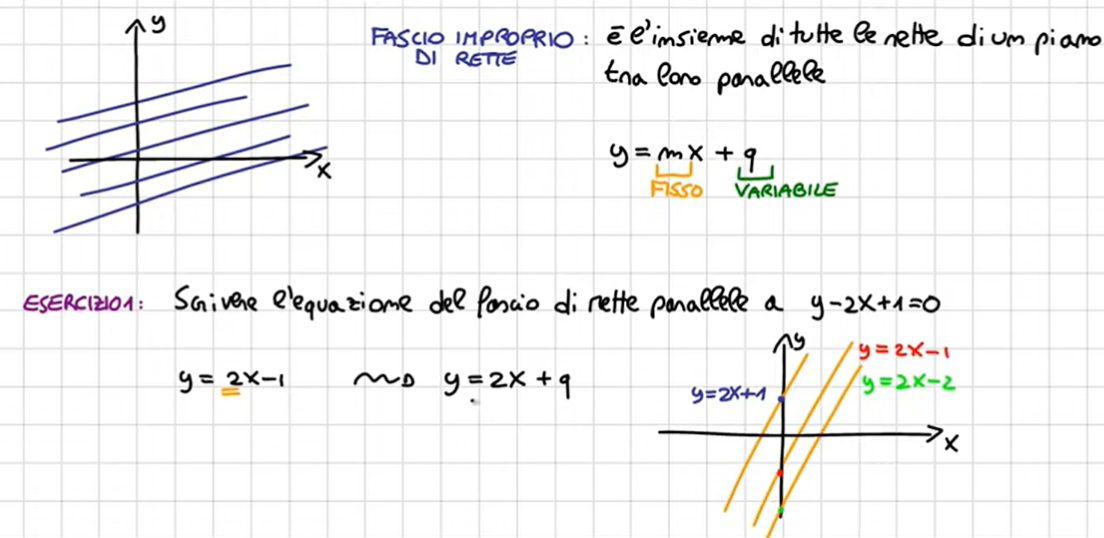 y
x
FASCIO IMPROPRIO : è l'insieme di tutte le rette di un piano
DI RETTE
tra loro parallele
y = mx + q
FISSO VARIABILE
ESERCIZIO 1: Scrivere l'equazione del fascio di rette parallele a y-2x+1=0
y = 2x-1 ⟿ y = 2x + q
y
y = 2x-1
y = 2x-2
y = 2x+1
x